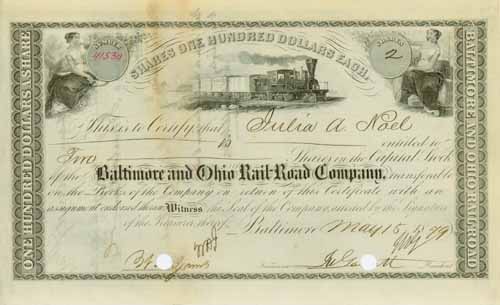 NUMBER
41530
SHARES
2
SHARES ONE HUNDRED DOLLARS EACH.
ONE HUNDRED DOLLARS A SHARE
BALTIMORE AND OHIO RAILROAD
This is to Certify that Julia A. Noel
is entitled to
Two Shares in the Capital Stock
of the Baltimore and Ohio Rail-Road Company, transferable
on the Books of the Company on return of this Certificate with an
assignment endorsed thereon. Witness the Seal of the Company, attested by the Signature
of the Treasurer thereof. Baltimore May 15 1879